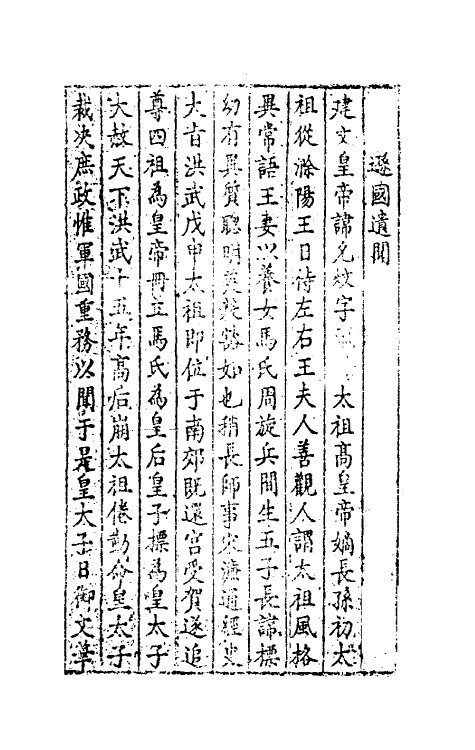 遜國遺聞
建文皇帝諱允炆字 太祖高皇帝嫡長孫初太
祖從滁陽王日侍左右王夫人善觀人謂太祖風格
異常語王妻以養女馬氏周旋兵間生五子長諱標
幼有異質聰明 如也稍長師事宋濂通經史
大旨洪武戊申太祖即位于南郊既還宮受賀遂追
尊四祖為皇帝冊立馬氏為皇后皇子標為皇太子
大赦天下洪武十五年高后崩太祖倦勤命皇太子
裁決庶政惟軍國重務以聞于是皇太子日御文華